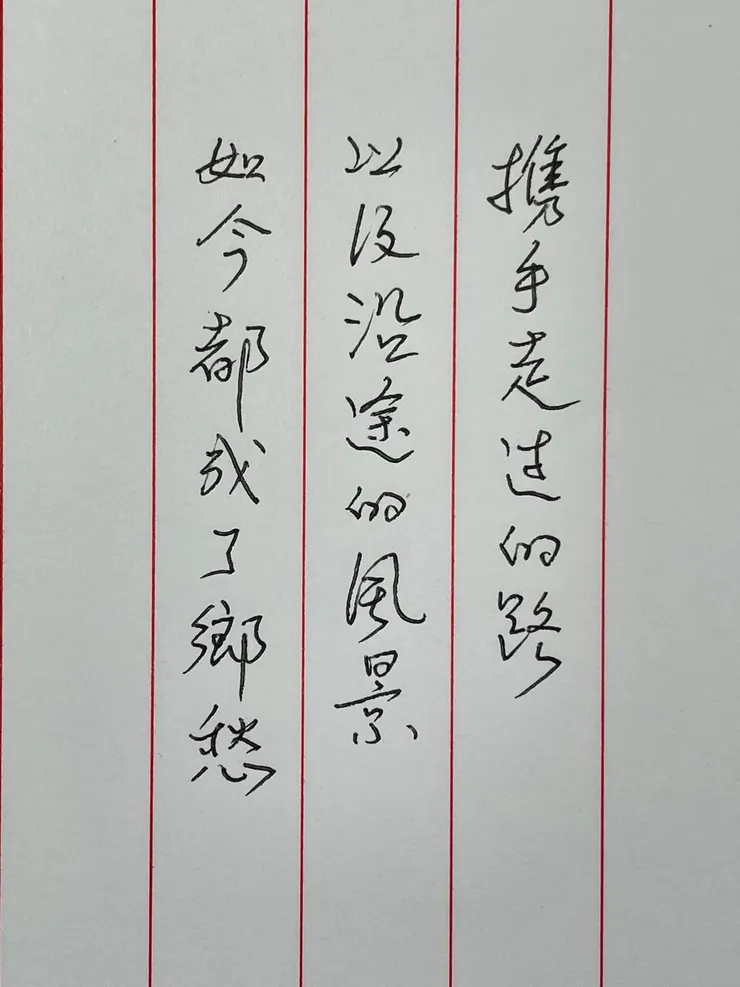 携手走过的路
以及沿途的风景
如今都成了鄉愁